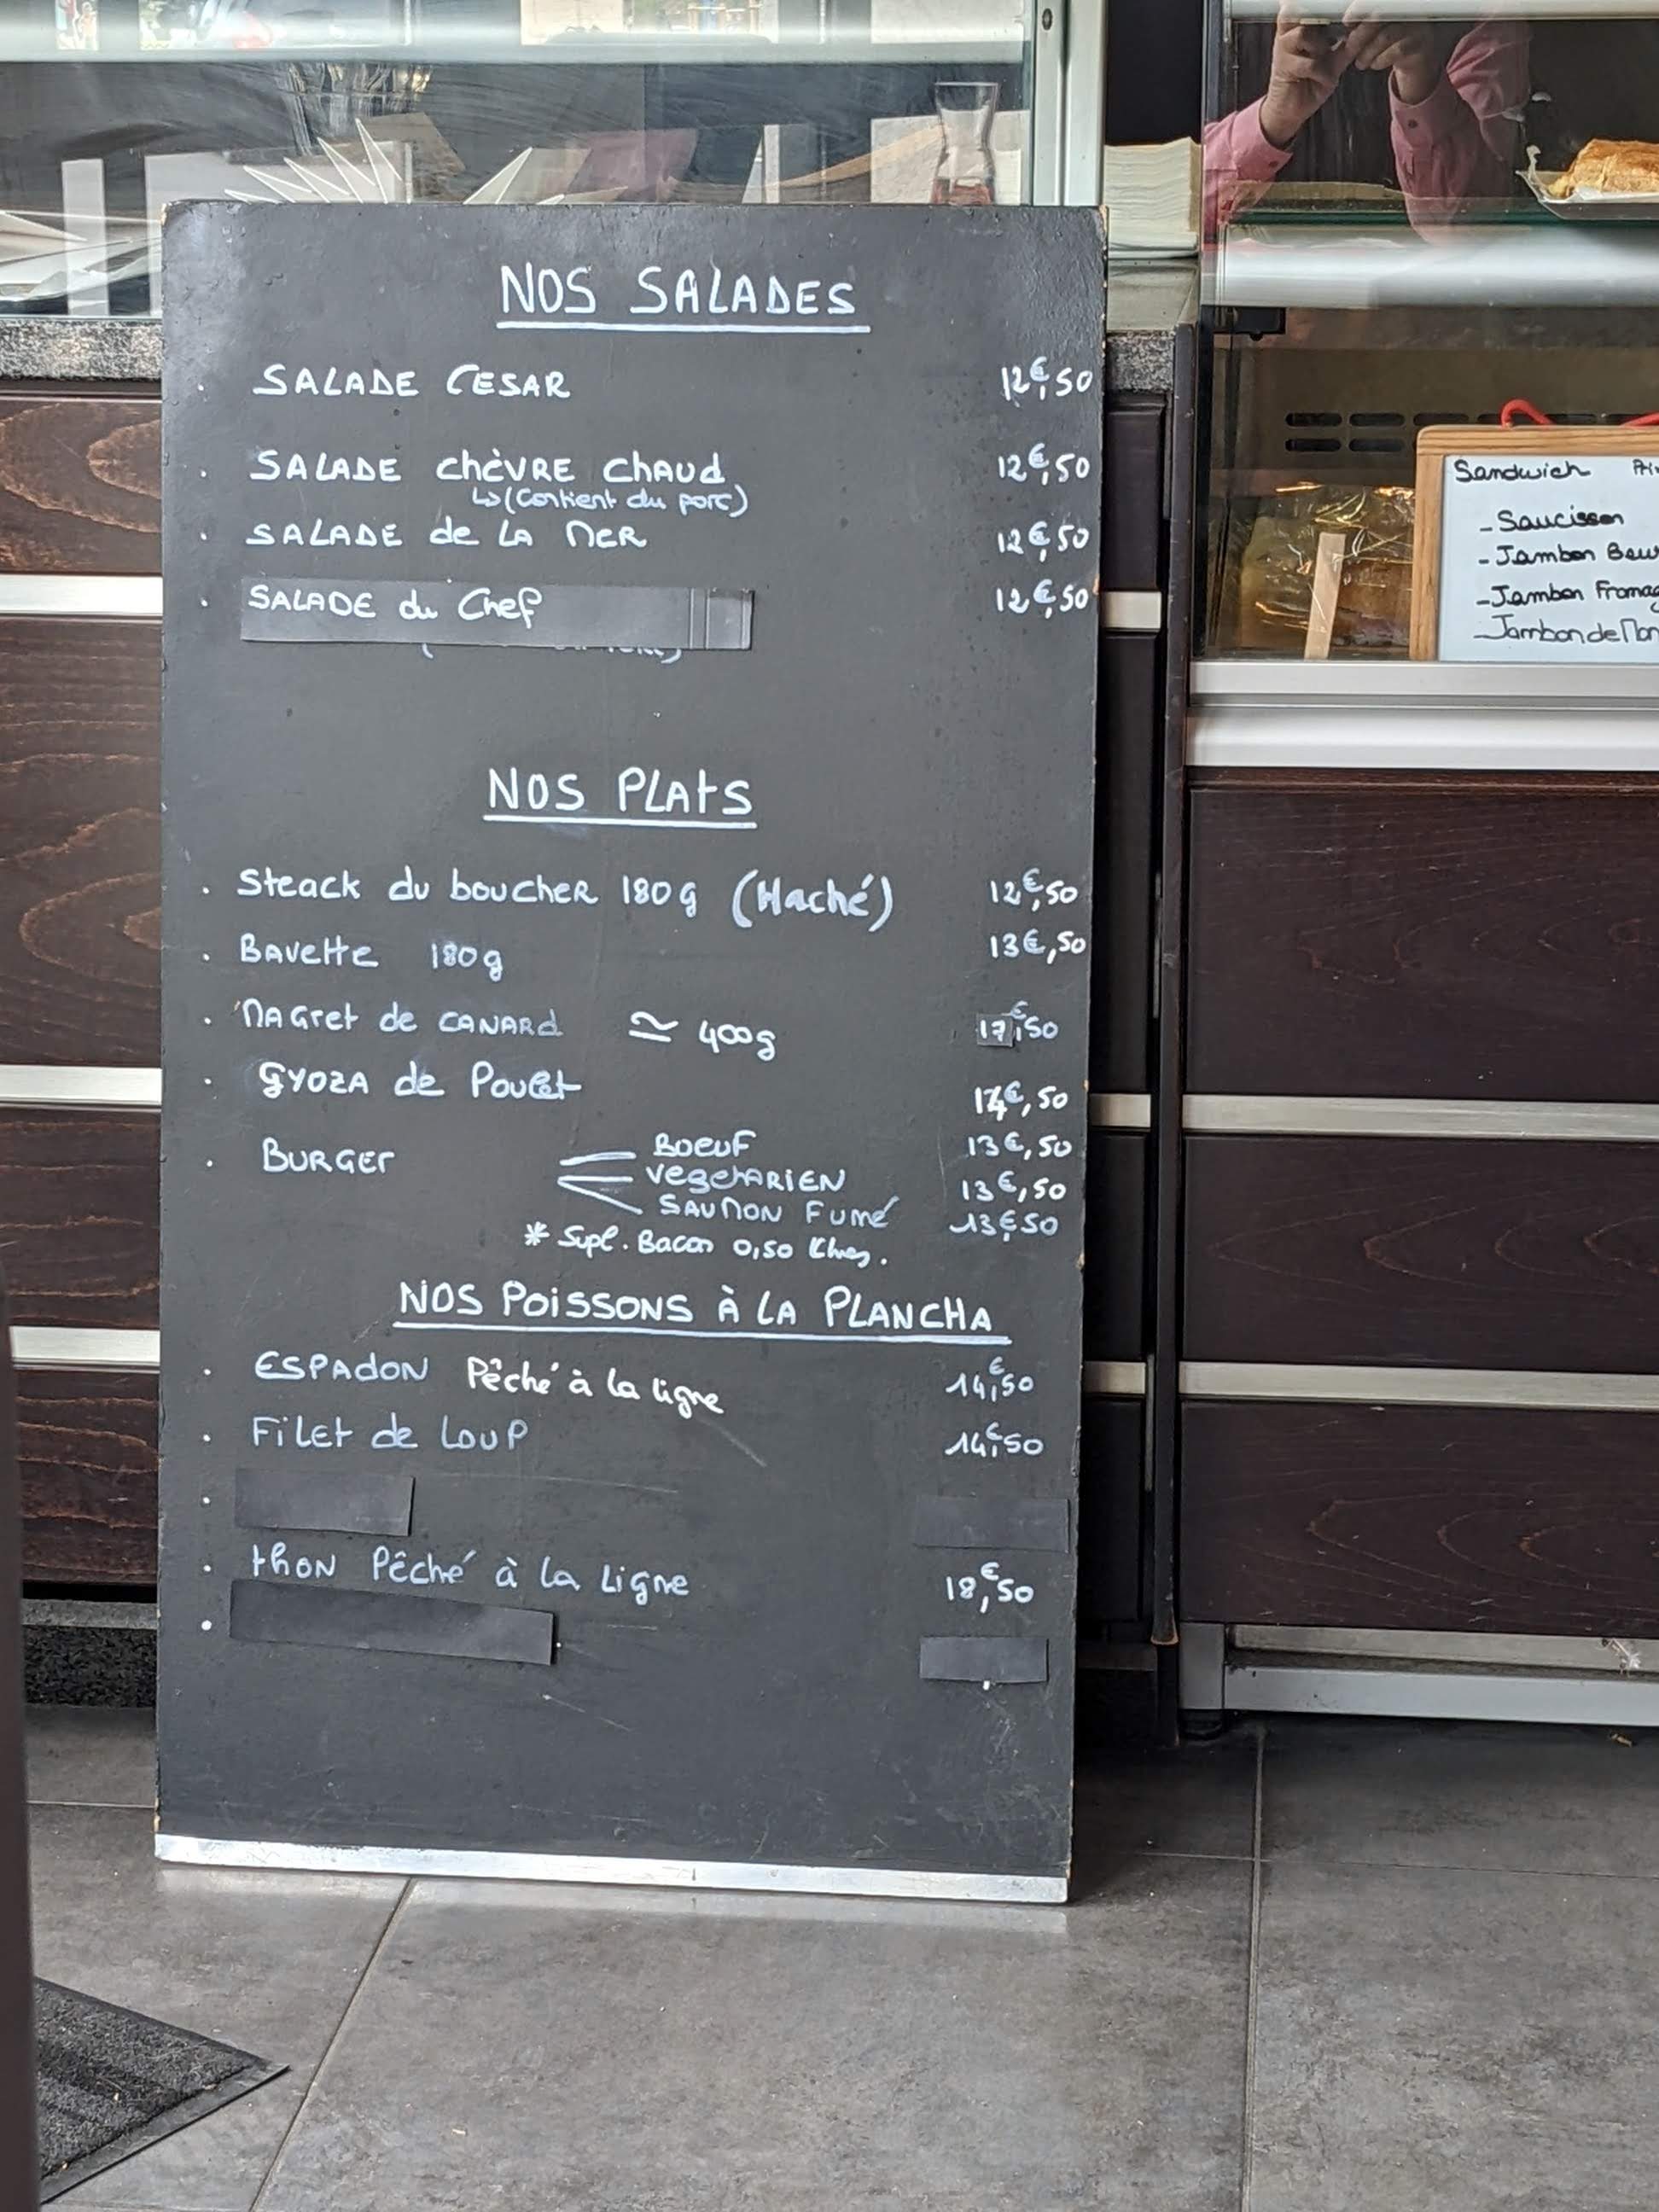 NOS SALADES
. SALADE CESAR 12€,50
. SALADE chèVRE chAUd 12€,50
↳ (Contient du porc)
. SALADE de LA MER 12€,50
. SALADE du Chef 12€,50
NOS PLAtS
. Steack du boucher 180g (Haché) 12€,50
. BAVette 180g 13€,50
. MAGret de CANARd ≃ 400g 17€,50
. GYOZA de Poulet €,50
. BURGER BOEUF 13€,50
VEGEtARIEN 13€,50
SAUMON Fumé 13€50
* Supl. Bacon 0,50
NOS POiSSONS À LA PLANCHA
. ESPAdON Pêché à la ligne 14€,50
. FiLEt de LOUP 14€,50
.
. thON Pêché à la Ligne 18€,50
.
Sandwich
- Saucisson
- Jambon
- Jambon
- Jambon de